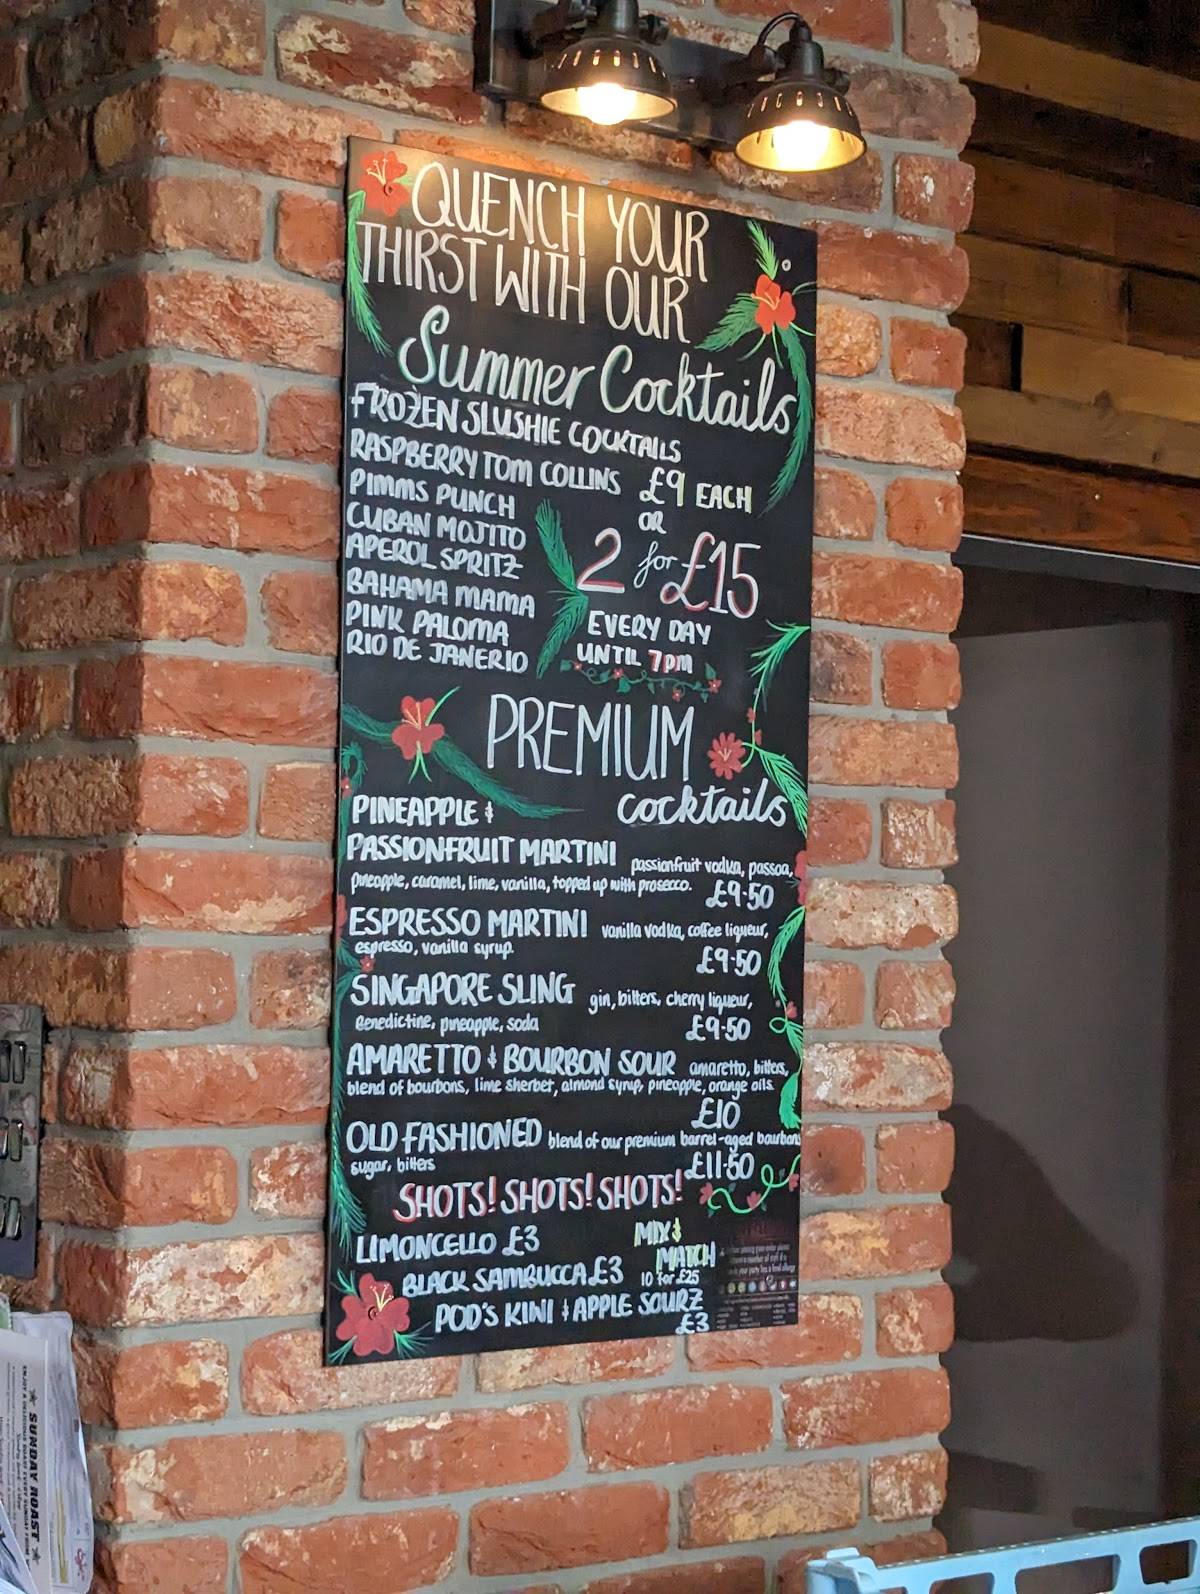 QUENCH YOUR
THIRST WITH OUR
Summer Cocktails
FROZEN SLUSHIE COCKTAILS
RASPBERRY TOM COLLINS
PIMMS PUNCH
CUBAN MOJITO
APEROL SPRITZ
BAHAMA MAMA
PINK PALOMA
RIO DE JANERIO
£9 EACH
OR
2 for £15
EVERY DAY
UNTIL 7pm
PREMIUM
cocktails
PINEAPPLE &
PASSIONFRUIT MARTINI passionfruit vodka, passoa,
pineapple, caramel, lime, vanilla, topped up with prosecco. £9.50
ESPRESSO MARTINI vanilla vodka, coffee liqueur,
espresso, vanilla syrup. £9.50
SINGAPORE SLING gin, bitters, cherry liqueur,
Benedictine, pineapple, soda £9.50
AMARETTO & BOURBON SOUR amaretto, bitters,
blend of bourbons, lime sherbet, almond syrup, pineapple, orange oils.
£10
OLD FASHIONED blend of our premium barrel-aged bourbons
sugar, bitters £11.50
SHOTS! SHOTS! SHOTS!
LIMONCELLO £3
BLACK SAMBUCCA £3
POD'S KIWI & APPLE SOURZ
£3
MIX &
MATCH
10 for £25
SUNDAY ROAST